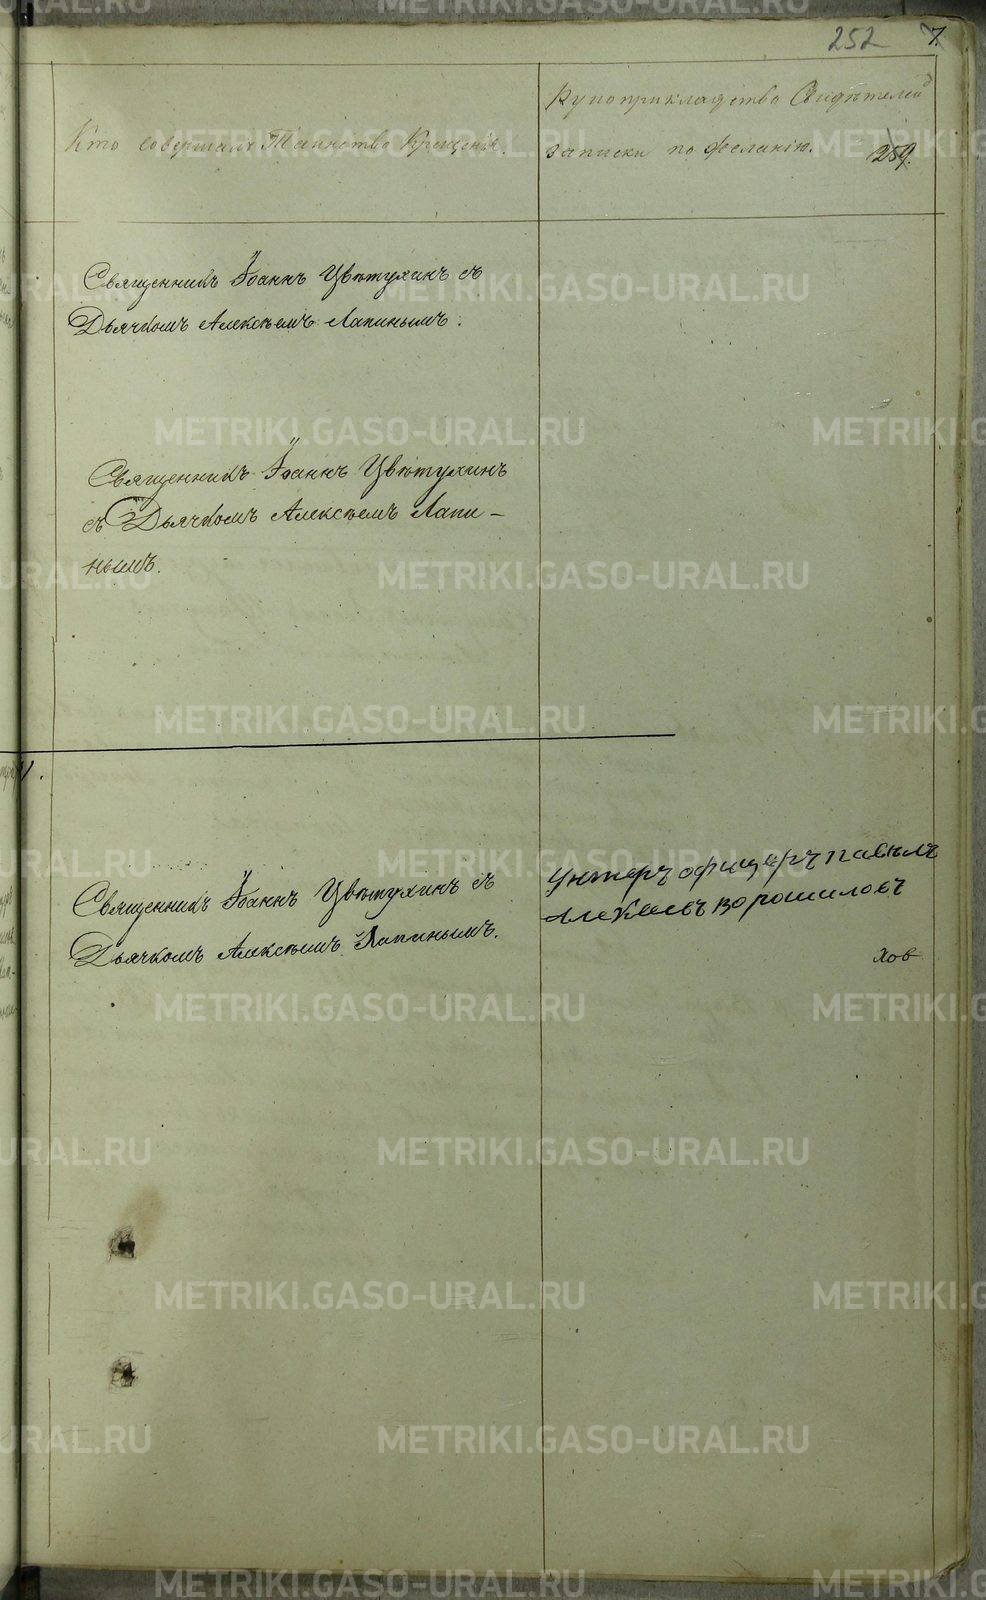 252 7
Рукоприкладство Свидѣтелей
Кто совершалъ Таинство Крещенія.
записки по желанію.
259.
Священникъ Іоаннъ Цвѣтухинъ съ
Дьячкомъ Алексѣемъ Лапинымъ.
Священникъ Іоаннъ Цвѣтухинъ
съ Дьячкомъ Алексѣемъ Лапи-
нымъ.
Священникъ Іоаннъ Цвѣтухинъ съ
Дьячкомъ Алексѣемъ Лапинымъ.
Унтеръ офицеръ павелъ
Алексеевъ ворошиловъ
хов
METRIKI.GASO-URAL.RU